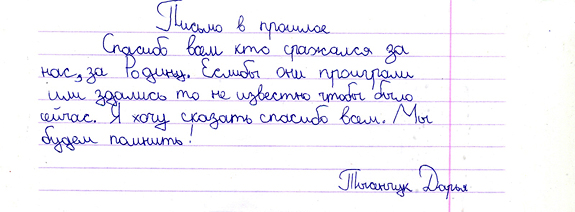 Письмо в прошлое
Спасиб всем кто сражался за
нас, за Родину. Еслибы они проиграли
или здались то не известно чтобы было
сейчас. Я хочу сказать спасибо всем. Мы
будем помнить!
Дарья